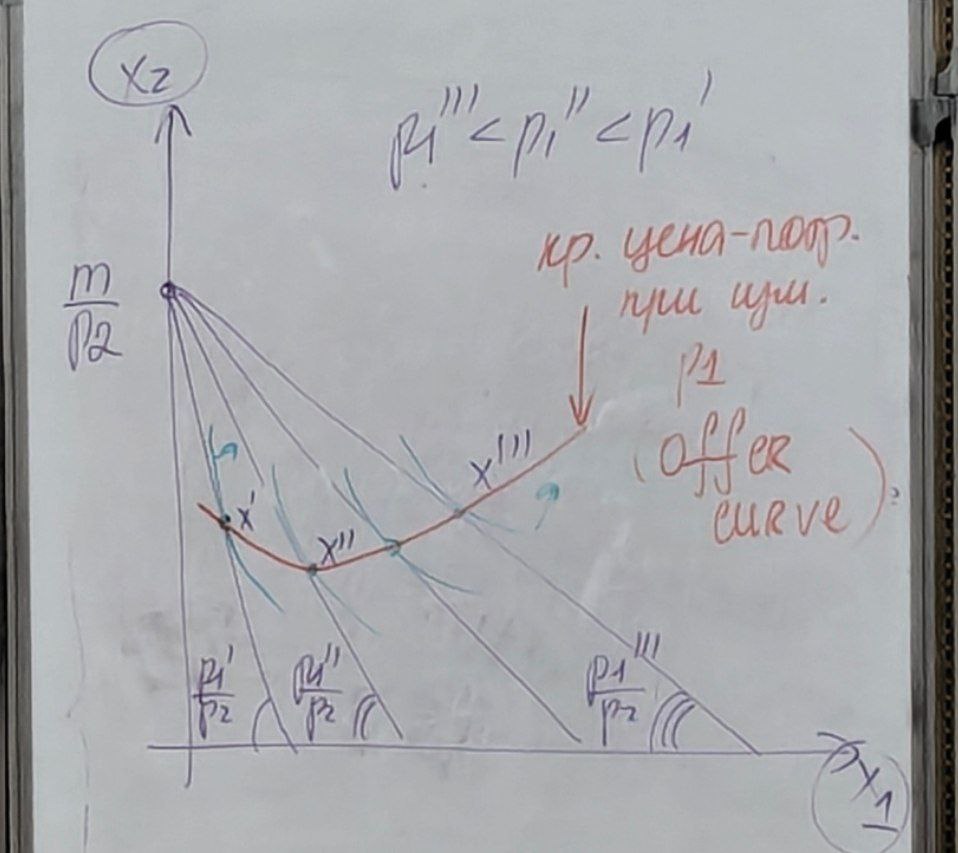 x2
p1''' < p1'' < p1'
кр. цена-потр.
при изм.
p1
(offer
curve)
m/p2
x'
x''
x'''
p1'/p2
p1''/p2
p1'''/p2
x1